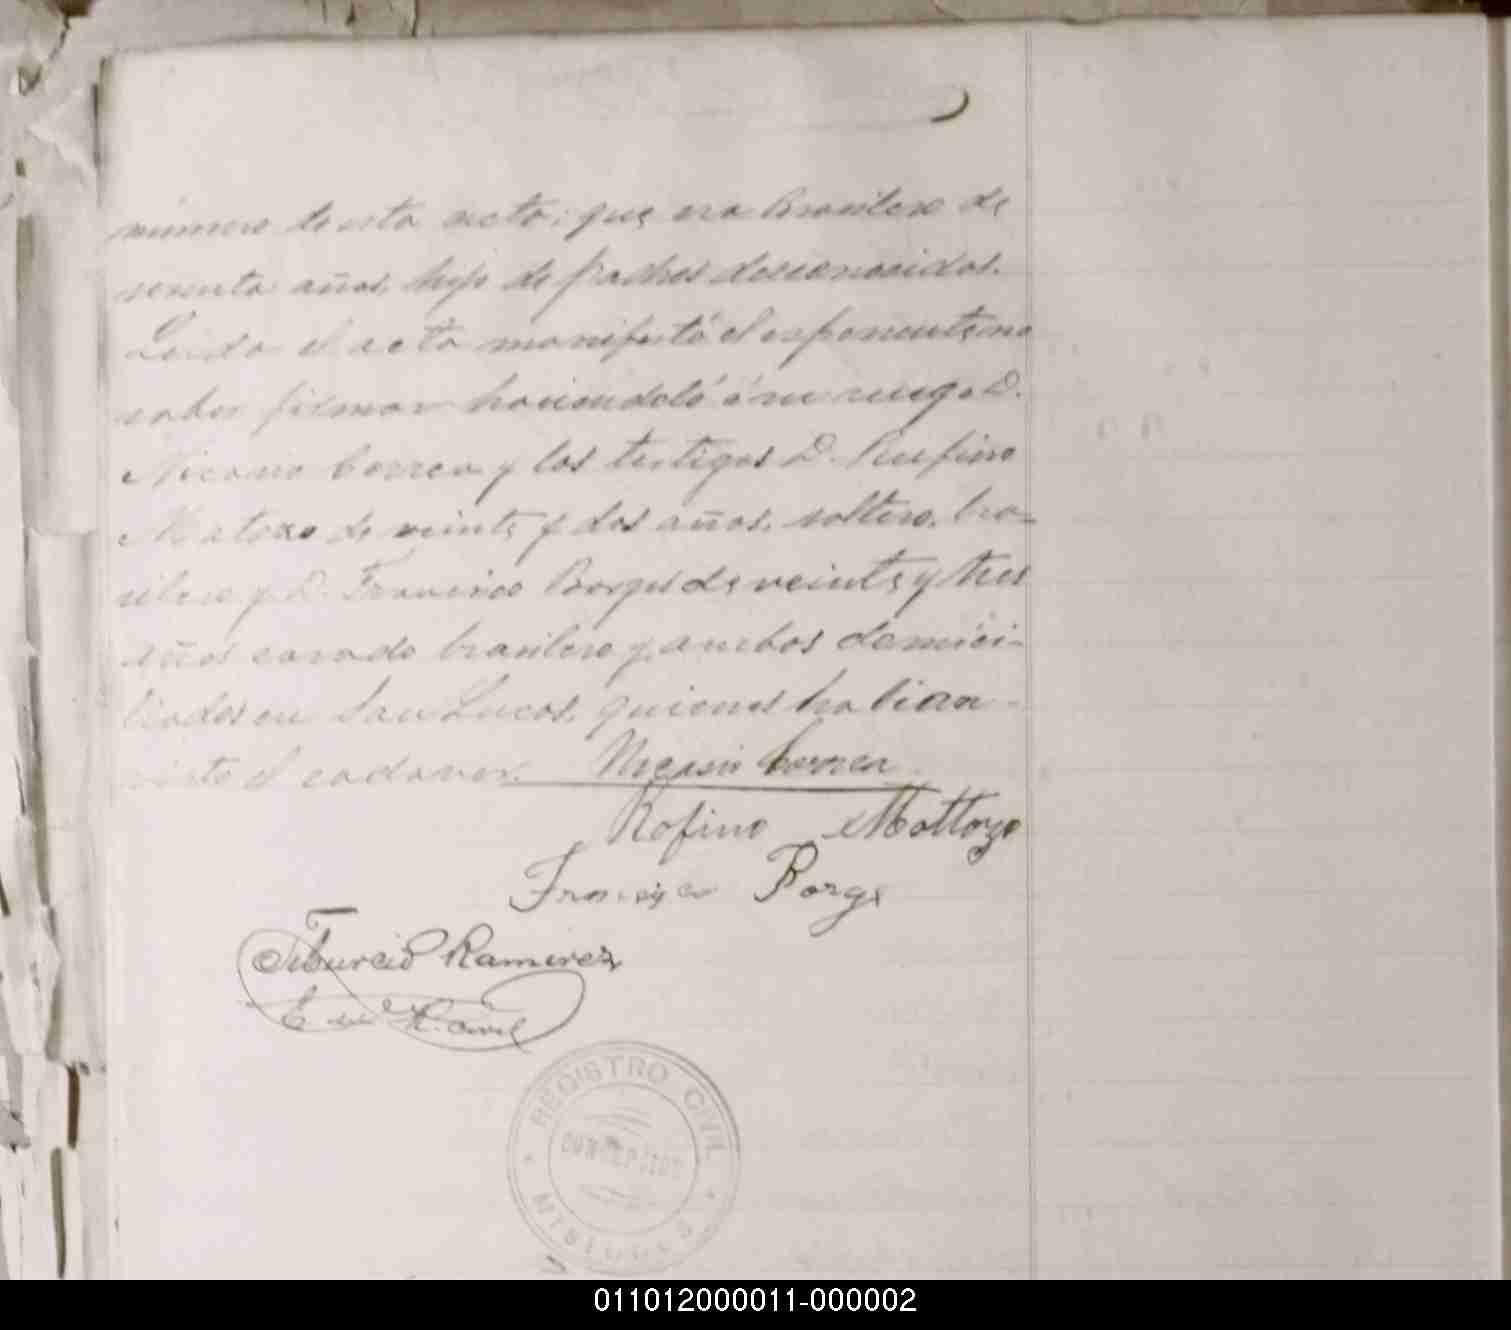 número de esta acta; que era brasilero de
sesenta años, hijo de padres desconocidos.
Leida el acta manifestó el exponente no
saber firmar haciendolo á su ruego D.
Nicasio Correa y los testigos D. Rufino
Matozo de veinte y dos años, soltero, bra-
silero y D. Francisco Borges de veinte y tres
años casado brasilero y ambos domici-
liados en San Lucas, quienes habian
visto el cadaver. Nicasio Correa
Rofino Mattozo
Francisco Borge
Tiburcio Ramirez
E. del R. Civil
REGISTRO CIVIL
CONCEPCION
MISIONES
011012000011-000002